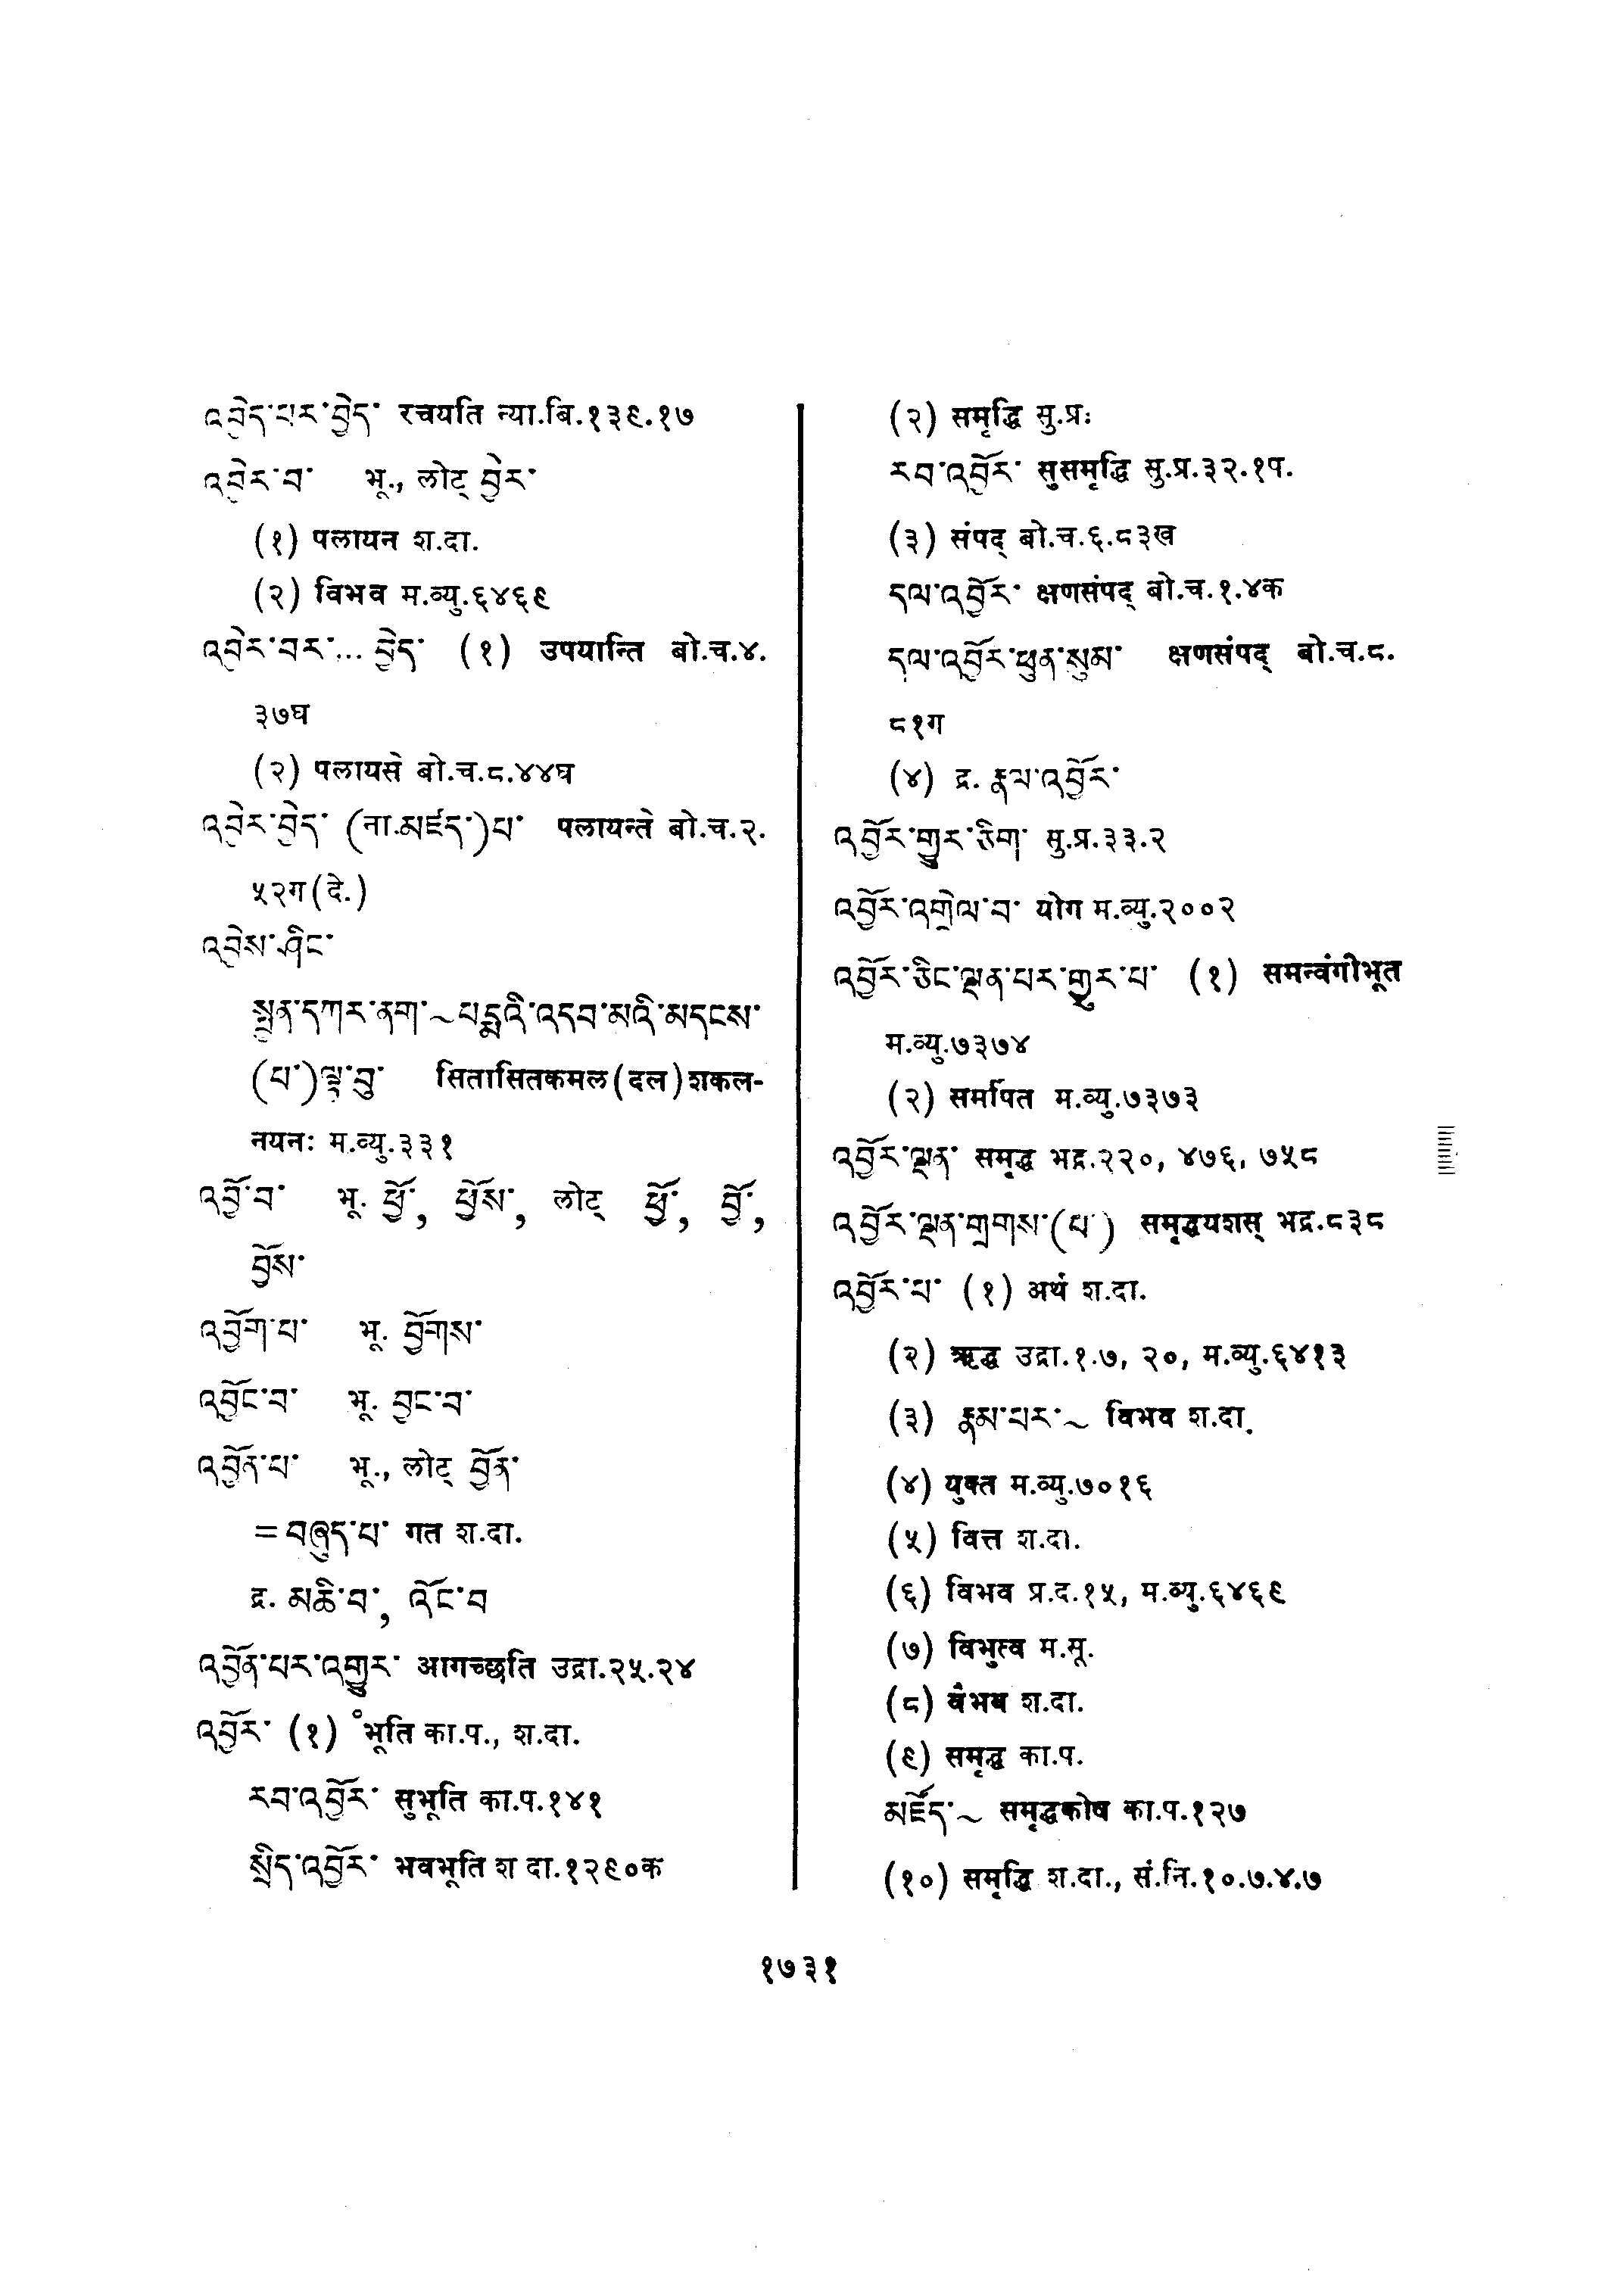 འབྱེད་པར་བྱེད་ रचयति न्या.बि.१३९.१७
འབྱེར་བ་ भू., लोट् བྱེར་
(१) पलायन श.दा.
(२) विभव म.व्यु.६४६९
འབྱེར་བར་... བྱེད་ (१) उपयान्ति बो.च.४.
३७घ
(२) पलायसे बो.च.८.४४घ
འབྱེར་བྱེད་ (ना.མཛད་)པ་ पलायन्ते बो.च.२.
५२ग(दे.)
འབྱེས་ཤིང་
སྤྱན་དཀར་ནག་~པདྨའི་འདབ་མའི་མདངས་
(པ་)ལྟ་བུ་ सितासितकमल(दल)शकल-
नयनः म.व्यु.३३१
འབྱོ་བ་ भू. ཕྱོ་, ཕྱོས་, लोट् ཕྱོ་, བྱོ་,
བྱོས་
འབྱོག་པ་ भू. བྱོགས་
འབྱོང་བ་ भू. བྱང་བ་
འབྱོན་པ་ भू., लोट् བྱོན་
=བཞུད་པ་ गत श.दा.
द्र. མཆི་བ་, འོང་བ
འབྱོན་པར་འགྱུར་ आगच्छति उद्रा.२५.२४
འབྱོར་ (१) ॰भूति का.प., श.दा.
རབ་འབྱོར་ सुभूति का.प.१४१
སྲིད་འབྱོར་ भवभूति श दा.१२९०क
(२) समृद्धि सु.प्र:
རབ་འབྱོར་ सुसमृद्धि सु.प्र.३२.१प.
(३) संपद् बो.च.६.८३ख
དལ་འབྱོར་ क्षणसंपद् बो.च.१.४क
དལ་འབྱོར་ཕུན་སུམ་ क्षणसंपद् बो.च.८.
८१ग
(४) द्र. རྣལ་འབྱོར་
འབྱོར་གྱུར་ཅིག་ सु.प्र.३३.२
འབྱོར་འགྲེལ་བ་ योग म.व्यु.२००२
འབྱོར་ཅིང་ལྡན་པར་གྱུར་པ་ (१) समन्वंगीभूत
म.व्यु.७३७४
(२) समर्पित म.व्यु.७३७३
འབྱོར་ལྡན་ समृद्ध भद्र.२२०, ४७६, ७५८
འབྱོར་ལྡན་གྲགས་(པ་) समृद्धयशस् भद्र.८३८
འབྱོར་པ་ (१) अर्थ श.दा.
(२) ऋद्ध उद्रा.१.७, २०, म.व्यु.६४१३
(३) རྣམ་པར་~ विभव श.दा.
(४) युक्त म.व्यु.७०१६
(५) वित्त श.दा.
(६) विभव प्र.द.१५, म.व्यु.६४६९
(७) विभुत्व म.मू.
(८) वैभव श.दा.
(९) समृद्ध का.प.
མཛོད་~ समृद्धकोष का.प.१२७
(१०) समृद्धि श.दा., सं.नि.१०.७.४.७
१७३१